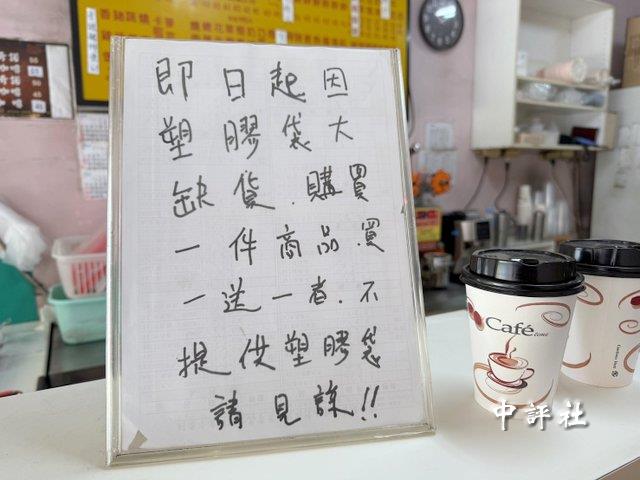 即日起因
塑膠袋大
缺貨.購買
一件商品.買
一送一者.不
提供塑膠袋
請見諒!!
Café
中評社